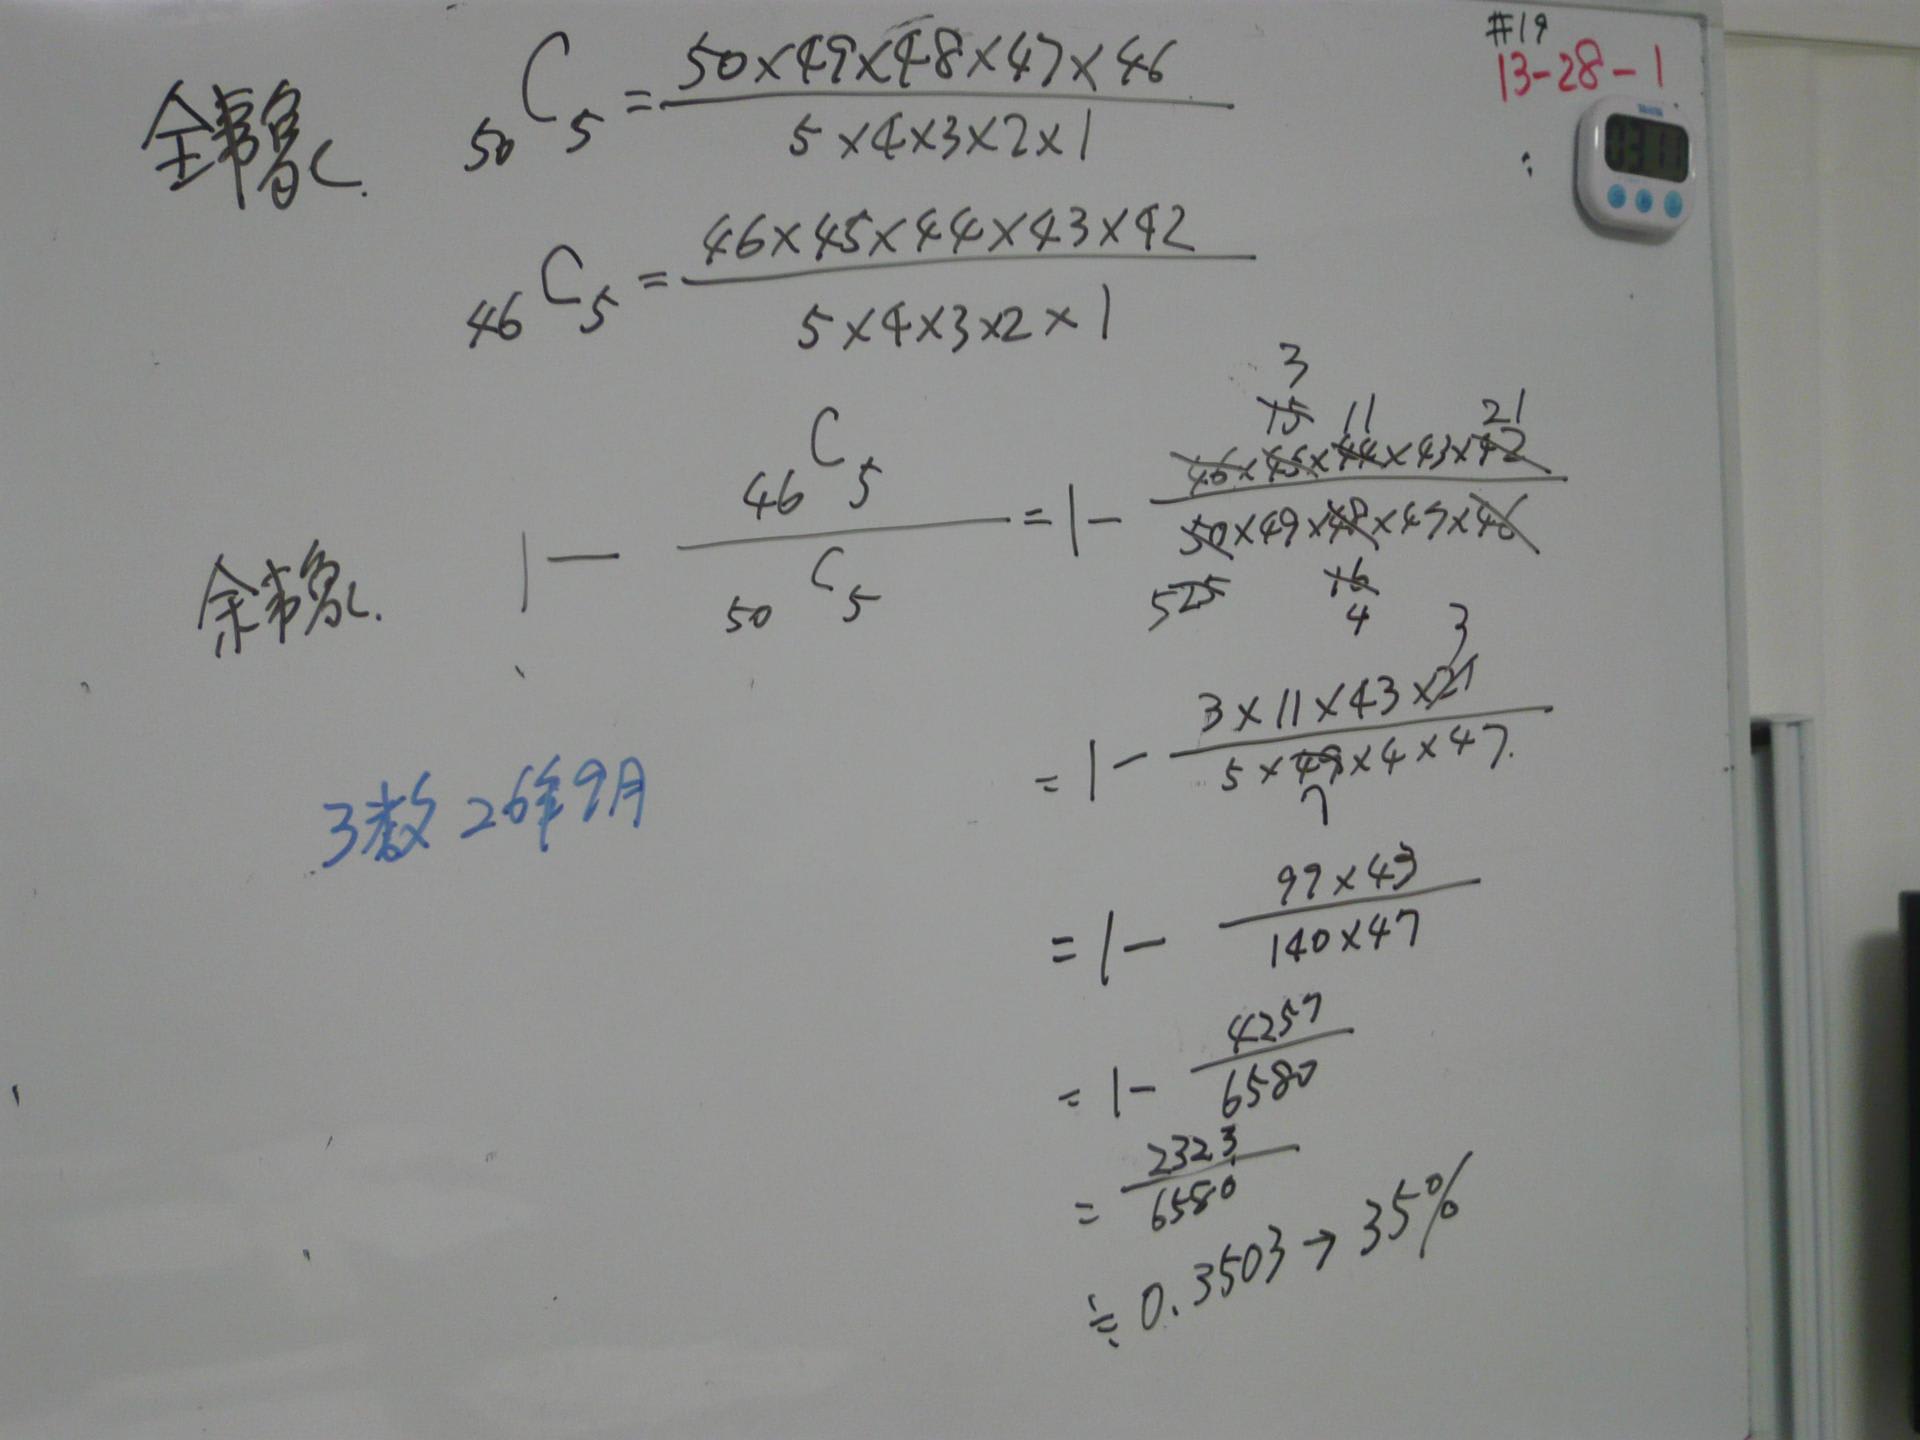 #19
13-28-1
全事象. 50C5 = 50×49×48×47×46 / 5×4×3×2×1
46C5 = 46×45×44×43×42 / 5×4×3×2×1
3
15 11 21
余事象. 1 - 46C5 / 50C5 = 1 - 46×45×44×43×42 / 50×49×48×47×46
5 25 16
4
= 1 - 3×11×43×21 / 5×49×4×47.
3
7
3数 26年9月
= 1 - 99×43 / 140×47
= 1 - 4257 / 6580
= 2323 / 6580
≒ 0.3503 → 35%